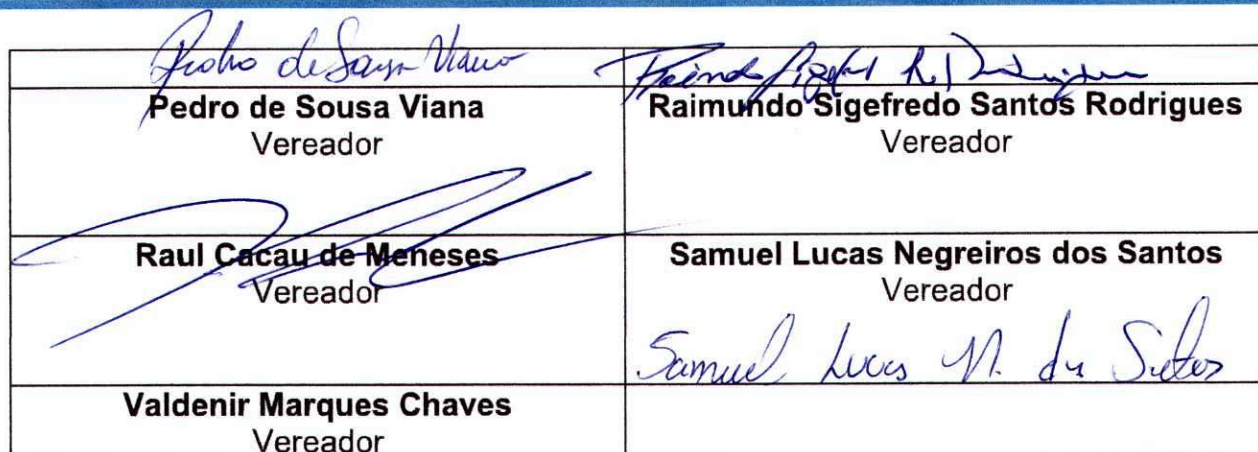 Pedro de Sousa Viana
Pedro de Sousa Viana
Vereador
Raimundo Sigefredo Santos Rodrigues
Vereador
Raul Cacau de Meneses
Vereador
Samuel Lucas Negreiros dos Santos
Vereador
Samuel Lucas N. dos Santos
Valdenir Marques Chaves
Vereador